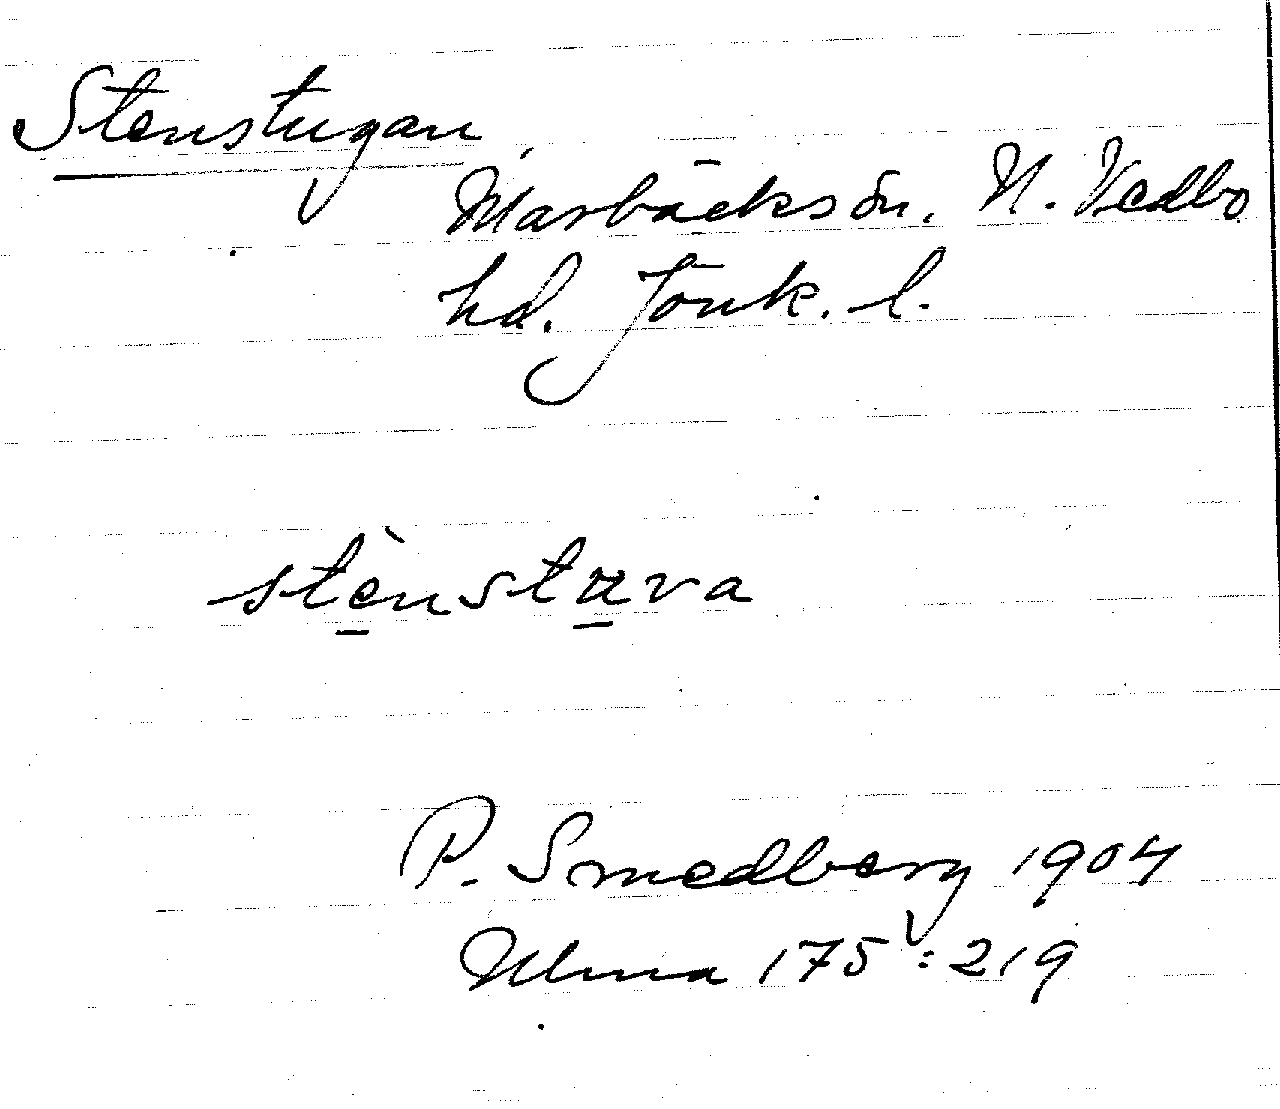 Stenstugan,
Marbäcks sn. N. Vedbo
hd. Jönk. l.
stènstuva
P. Smedberg 1904
Ulma 175:219